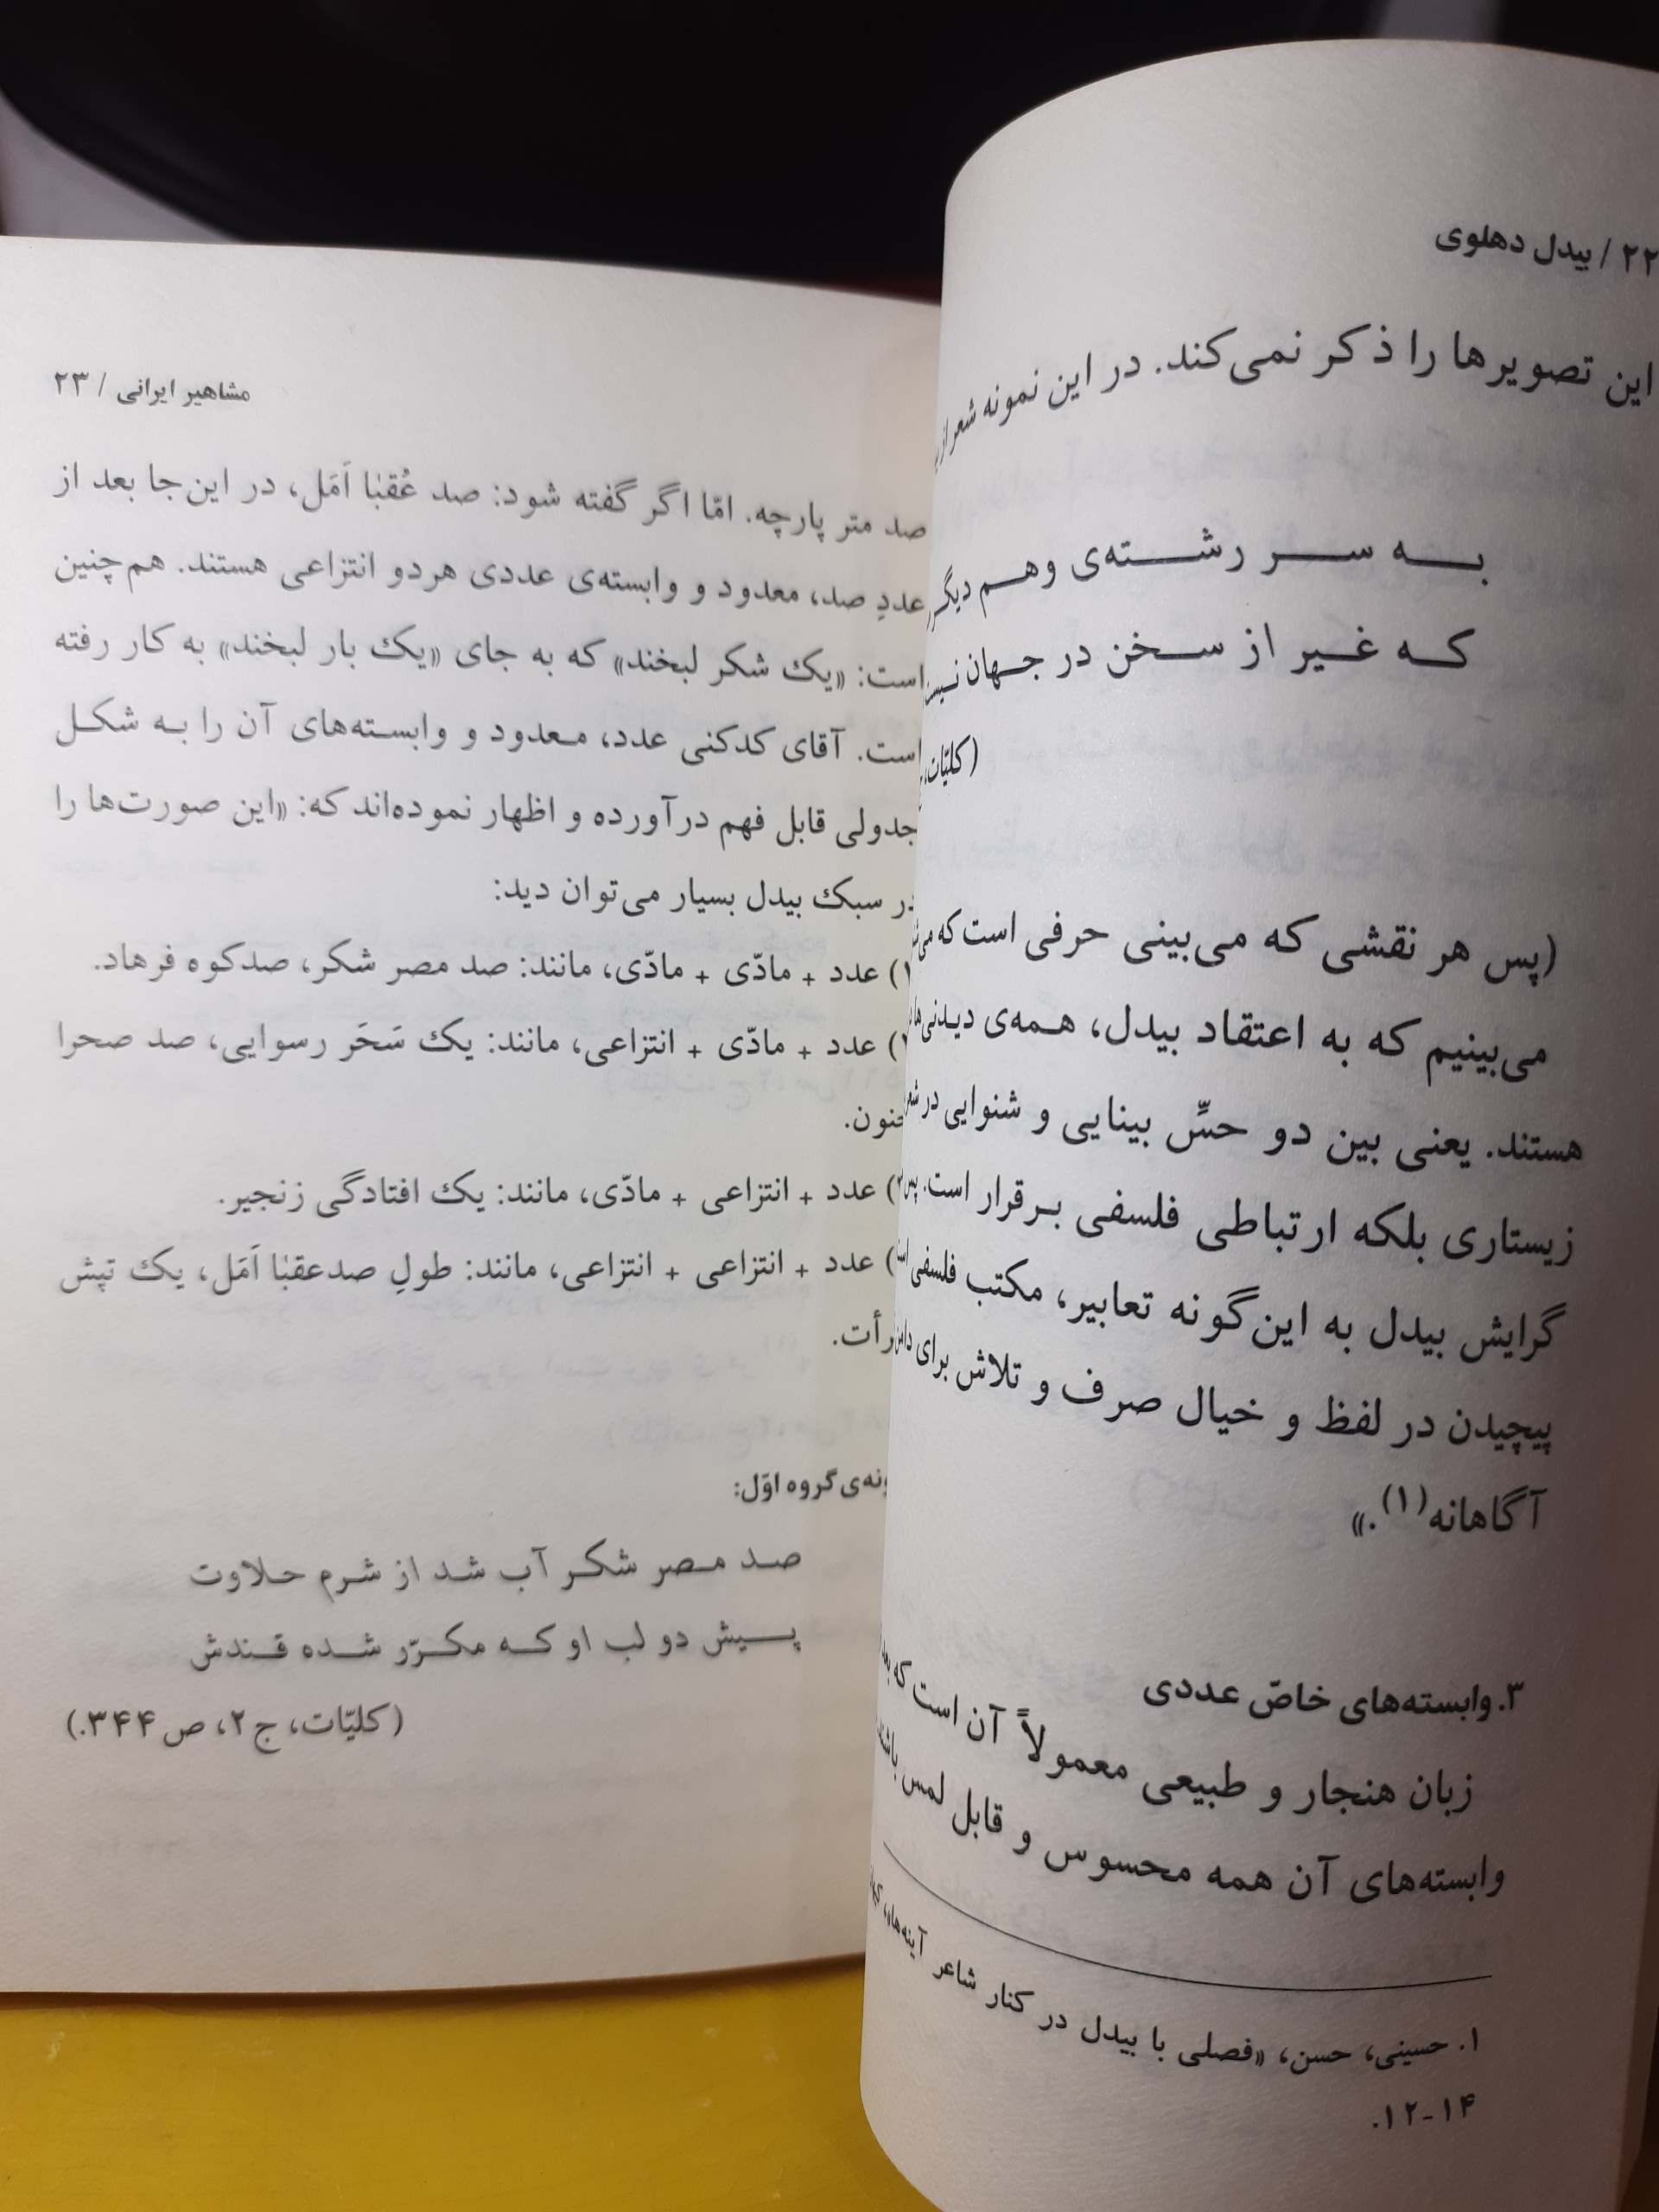 ۲۲ / بیدل دهلوی
این تصویرها را ذکر نمی‌کند. در این نمونه شعر از
بـه سـر رشـته‌ی وهـم دیگر
کـه غـیر از سـخن در جـهان نیست
(کلیّات،
(پس هر نقشی که می‌بینی حرفی است که
می‌بینیم که به اعتقاد بیدل، همه‌ی دیدنی‌ها
هستند. یعنی بین دو حسِّ بینایی و شنوایی در
زیستاری بلکه ارتباطی فلسفی برقرار است. پس
گرایش بیدل به این‌گونه تعابیر، مکتب فلسفی
پیچیدن در لفظ و خیال صرف و تلاش برای
آگاهانه(۱).»
۳. وابسته‌های خاصّ عددی
زبان هنجار و طبیعی معمولاً آن است که
وابسته‌های آن همه محسوس و قابل لمس
۱. حسینی، حسن، «فصلی با بیدل در کنار شاعر آینه‌ها»،
۱۲-۱۴.
مشاهیر ایرانی / ۲۳
صد متر پارچه. امّا اگر گفته شود: صد عُقبٰا اَمَل، در این‌جا بعد از
عددِ صد، معدود و وابسته‌ی عددی هردو انتزاعی هستند. هم‌چنین
است: «یک شکر لبخند» که به جای «یک بار لبخند» به کار رفته
است. آقای کدکنی عدد، مـعدود و وابسـته‌های آن را بـه شکـل
جدولی قابل فهم درآورده و اظهار نموده‌اند که: «این صورت‌ها را
در سبک بیدل بسیار می‌توان دید:
۱) عدد + مادّی + مادّی، مانند: صد مصر شکر، صدکوه فرهاد.
) عدد + مادّی + انتزاعی، مانند: یک سَحَر رسوایی، صد صحرا
جنون.
) عدد + انتزاعی + مادّی، مانند: یک افتادگی زنجیر.
) عدد + انتزاعی + انتزاعی، مانند: طولِ صدعقبٰا اَمَل، یک تپش
رأت.
ونه‌ی گروه اوّل:
صـد مـصر شکـر آب شـد از شـرم حـلاوت
پـیش دو لب او کـه مکـرّر شـده قـندش
(کلیّات، ج ۲، ص ۳۴۴.)